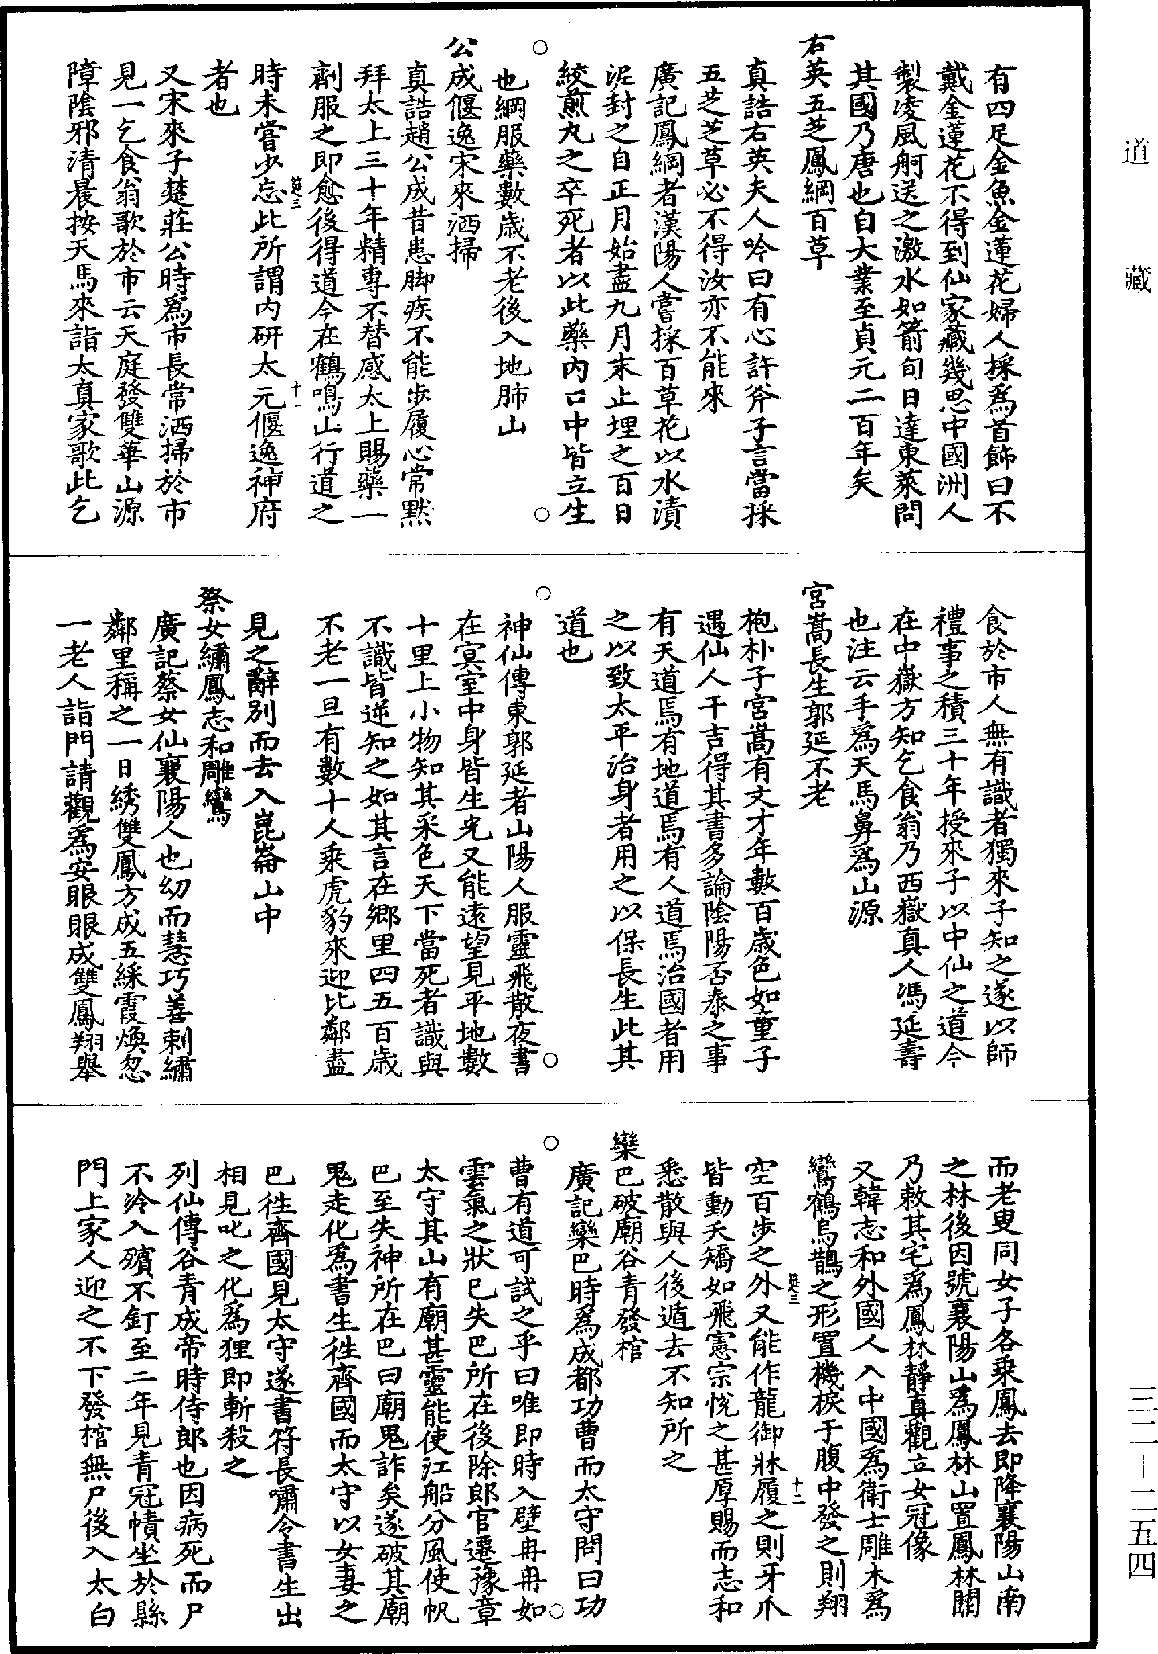 道藏
有四足金魚金蓮花婦人採爲首飾曰不
戴金蓮花不得到仙家藏幾思中國洲人
製凌風舸送之激水如箭旬日達東萊問
其國乃唐也自大業至貞元二百年矣
右英五芝鳳綱百草
真誥右英夫人吟曰有心許斧子言當採
五芝芝草必不得汝亦不能來
廣記鳳綱者漢陽人嘗採百草花以水漬
泥封之自正月始盡九月末止埋之百日
絞煎丸之卒死者以此藥內口中皆立生
也綱服藥數歲不老後入地肺山
公成偃逸宋來洒掃
真誥趙公成昔患脚疾不能步履心常黙
拜太上三十年精專不替感太上賜藥一
劑服之即愈後得道今在鶴鳴山行道之
時未嘗少忘此所謂內研太元偃逸神府
者也
又宋來子楚莊公時爲市長常洒掃於市
見一乞食翁歌於市云天庭發雙華山源
障陰邪清晨按天馬來詣太真家歌此乞
食於市人無有識者獨來子知之遂以師
禮事之積三十年授來子以中仙之道今
在中嶽方知乞食翁乃西嶽真人馮延壽
也注云手爲天馬鼻爲山源
宮嵩長生郭延不老
抱朴子宮嵩有文才年數百歲色如童子
遇仙人干吉得其書多論陰陽否泰之事
有天道焉有地道焉有人道焉治國者用
之以致太平治身者用之以保長生此其
道也
神仙傳東郭延者山陽人服靈飛散夜書
在冥室中身皆生光又能遠望見平地數
十里上小物知其采色天下當死者識與
不識皆逆知之如其言在鄉里四五百歲
不老一旦有數十人乘虎豹來迎比鄰盡
見之辭別而去入崑崙山中
蔡女繡鳳志和雕鸞
廣記蔡女仙襄陽人也幼而慧巧善刺繡
鄰里稱之一日綉雙鳳方成五綵霞煥忽
一老人詣門請觀爲安眼眼成雙鳳翔舉
而老叟同女子各乘鳳去即降襄陽山南
之林後因號襄陽山爲鳳林山置鳳林關
乃敕其宅爲鳳林靜真觀立女冠像
又韓志和外國人入中國爲衛士雕木爲
鸞鶴烏鵲之形置機捩于腹中發之則翔
空百步之外又能作龍御牀履之則牙爪
皆動夭矯如飛憲宗悅之甚厚賜而志和
悉散與人後遁去不知所之
欒巴破廟谷青發棺
廣記欒巴時爲成都功曹而太守問曰功
曹有道可試之乎曰唯即時入壁冉冉如
雲氣之狀已失巴所在後除郎官遷豫章
太守其山有廟甚靈能使江船分風使帆
巴至失神所在巴曰廟鬼詐矣遂破其廟
鬼走化爲書生徃齊國而太守以女妻之
巴徃齊國見太守遂書符長嘯令書生出
相見叱之化爲狸即斬殺之
列仙傳谷青成帝時侍郎也因病死而尸
不冷入殯不釘至二年見青冠幘坐於縣
門上家人迎之不下發棺無尸後入太白
三二—二五四